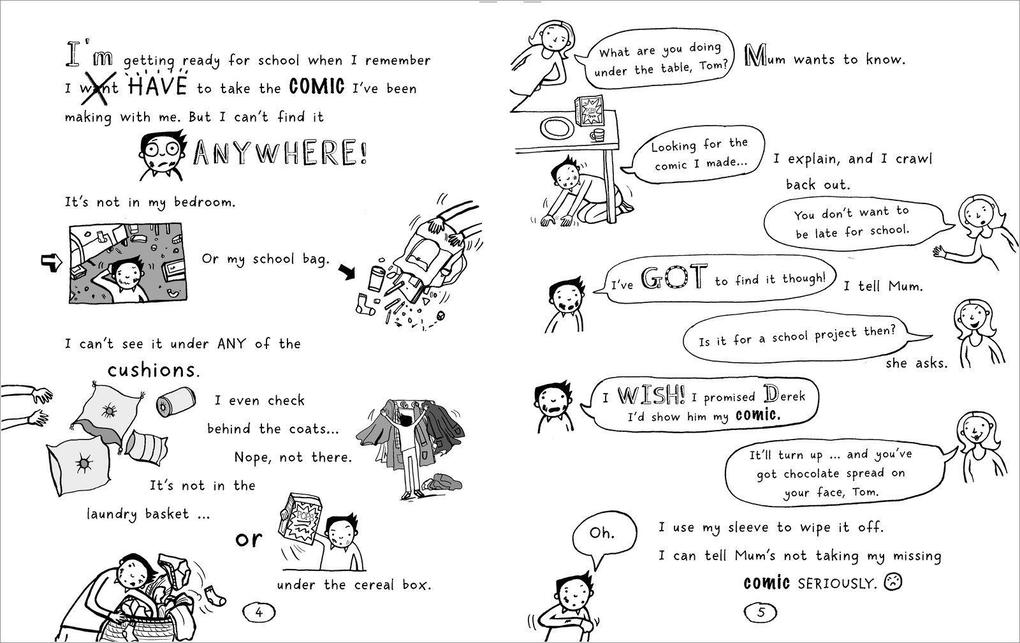 I'm getting ready for school when I remember
I want HAVE to take the COMIC I've been
making with me. But I can't find it
ANYWHERE!
It's not in my bedroom.
Or my school bag.
I can't see it under ANY of the
cushions.
I even check
behind the coats...
Nope, not there.
It's not in the
laundry basket ...
or
under the cereal box.
4
What are you doing
under the table, Tom?
Mum wants to know.
Looking for the
comic I made...
I explain, and I crawl
back out.
You don't want to
be late for school.
I've GOT to find it though!
I tell Mum.
Is it for a school project then?
she asks.
I WISH! I promised Derek
I'd show him my comic.
It'll turn up ... and you've
got chocolate spread on
your face, Tom.
Oh.
I use my sleeve to wipe it off.
I can tell Mum's not taking my missing
comic SERIOUSLY.
5